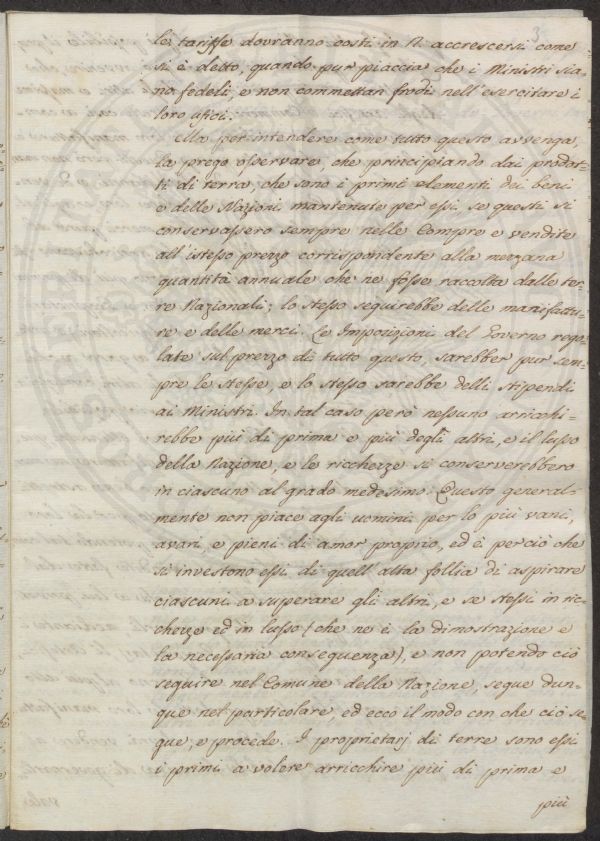 3
le tariffe dovranno costì in N. accrescersi come
si è detto, quando pur piaccia che i Ministri sia-
no fedeli, e non commettan frodi nell'esercitare i
loro ufici.
Ma per intendere come tutto questo avvenga,
la prego osservare, che principiando dai prodot-
ti di terra, che sono i primi elementi dei beni
e delle Nazioni mantenute per essi, se questi si
conservassero sempre nelle Compre e vendite
all'istesso prezzo corrispondente alla mezzana
quantità annuale che ne fosse raccolta dalle ter-
re Nazionali; lo stesso seguirebbe delle manifattu-
re e delle merci. Le Imposizioni del Governo rego-
late sul prezzo di tutto questo, sarebber pur sem-
pre le stesse, e lo stesso sarebbe delli stipendi
ai Ministri. In tal caso però nessuno arricchi-
rebbe più di prima e più degli altri, e il lusso
della Nazione, e le ricchezze si conserverebbero
in ciascuno al grado medesimo. Questo general-
mente non piace agli uomini per lo più vani,
avari, e pieni di amor proprio, ed è perciò che
si investono essi di quell'alta follia di aspirare
ciascuni a superare gli altri, e se stessi in ric-
chezze ed in lusso (che ne è la dimostrazione e
la necessaria conseguenza), e non potendo ciò
seguire nel Comune della Nazione, segue dun-
que nel particolare, ed ecco il modo con che ciò se-
gue, e procede. I proprietarj di terre sono essi
i primi a volere arricchire più di prima e
più